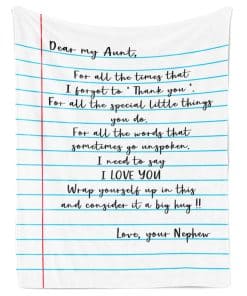 Dear my Aunt,
For all the times that
I forgot to " Thank you ".
For all the special little things
you do.
For all the words that
sometimes go unspoken.
I need to say
I LOVE YOU
Wrap yourself up in this
and consider it a big hug !!
Love, your Nephew